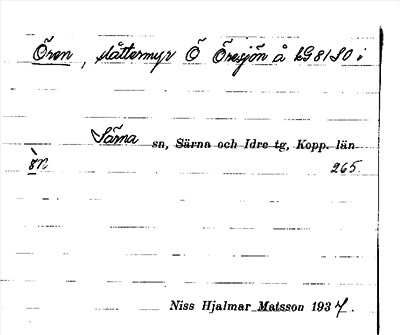 Ören, slåttermyr Ö Öresjön å kG 81 SO i
Särna sn, Särna och Idre tg, Kopp. län
265.
Niss Hjalmar Matsson 1937.